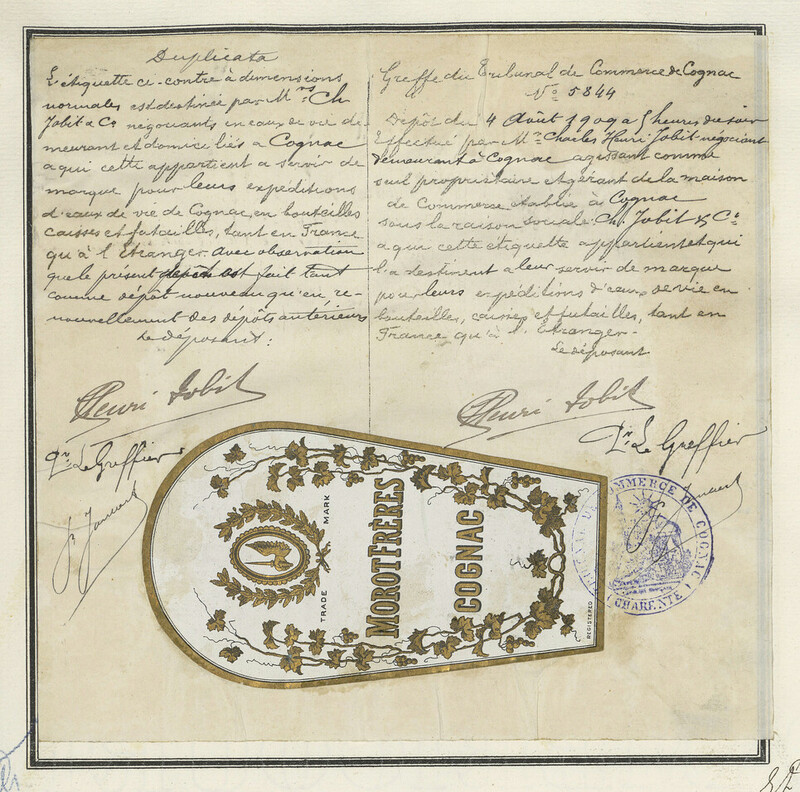 Duplicata
L'étiquette ci-contre à dimensions
normales est destinée par Mrs Ch
Jobit & Co négociants en eaux de vie de-
meurant et domiciliés à Cognac
a qui cette appartient a servir de
marque pour leurs expéditions
d'eaux de vie de Cognac, en bouteilles
caisses et futailles, tant en France
qu'à l'Etranger. avec observation
que le présent dépôt est fait tant
comme dépôt nouveau qu'en re-
nouvellement des dépôts antérieurs
Le déposant:
Henri Jobit
Pr. Le Greffier
Greffe du Tribunal de Commerce de Cognac
No 5844
Dépôt du 4 Août 1909 a 5 heures du soir
Effectué par Mr Charles Henri Jobit négociant
demeurant à Cognac agissant comme
seul propriétaire et gérant de la maison
de Commerce établie à Cognac
sous la raison sociale: Ch. Jobit & Co
a qui cette étiquette appartient et qui
l'a destinent a leur servir de marque
pour leurs expéditions d'eaux de vie en
bouteilles, caisses et futailles, tant en
France qu'à l'Etranger.
Le déposant
Henri Jobit
Pr. Le Greffier
TRADE MARK
MOROT FRÈRES
COGNAC
REGISTERED
COMMERCE DE COGNAC
(CHARENTE)